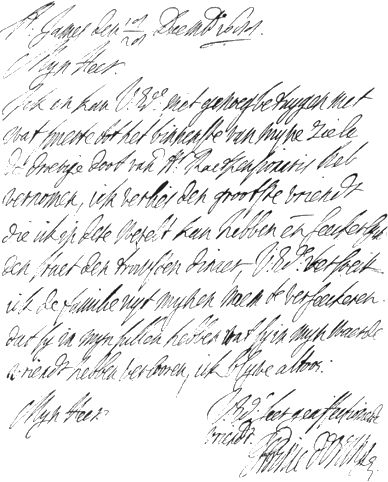 St. James den 10/20 Decemb 1688.
Myn Heer.
Ick en kan U.Ed. niet genoeg betuygen met
wat smerte tot het binnenste van myne Ziele
de droevige doot van Hr. Raetpensionaris heb
vernomen, ick verlies den grootste vriendt
die ick op dese werelt kan hebben en
den staet den trouwsten dienaer, U.Ed. versoeck
ick de familie uyt mynen naem te verseeckeren
dat sy in myn sullen hebben wat sy in myn waerde
vriendt hebben verlooren, ick blyve altoos.
Myn Heer
U.Ed. seer geaffectioneerde
vriendt